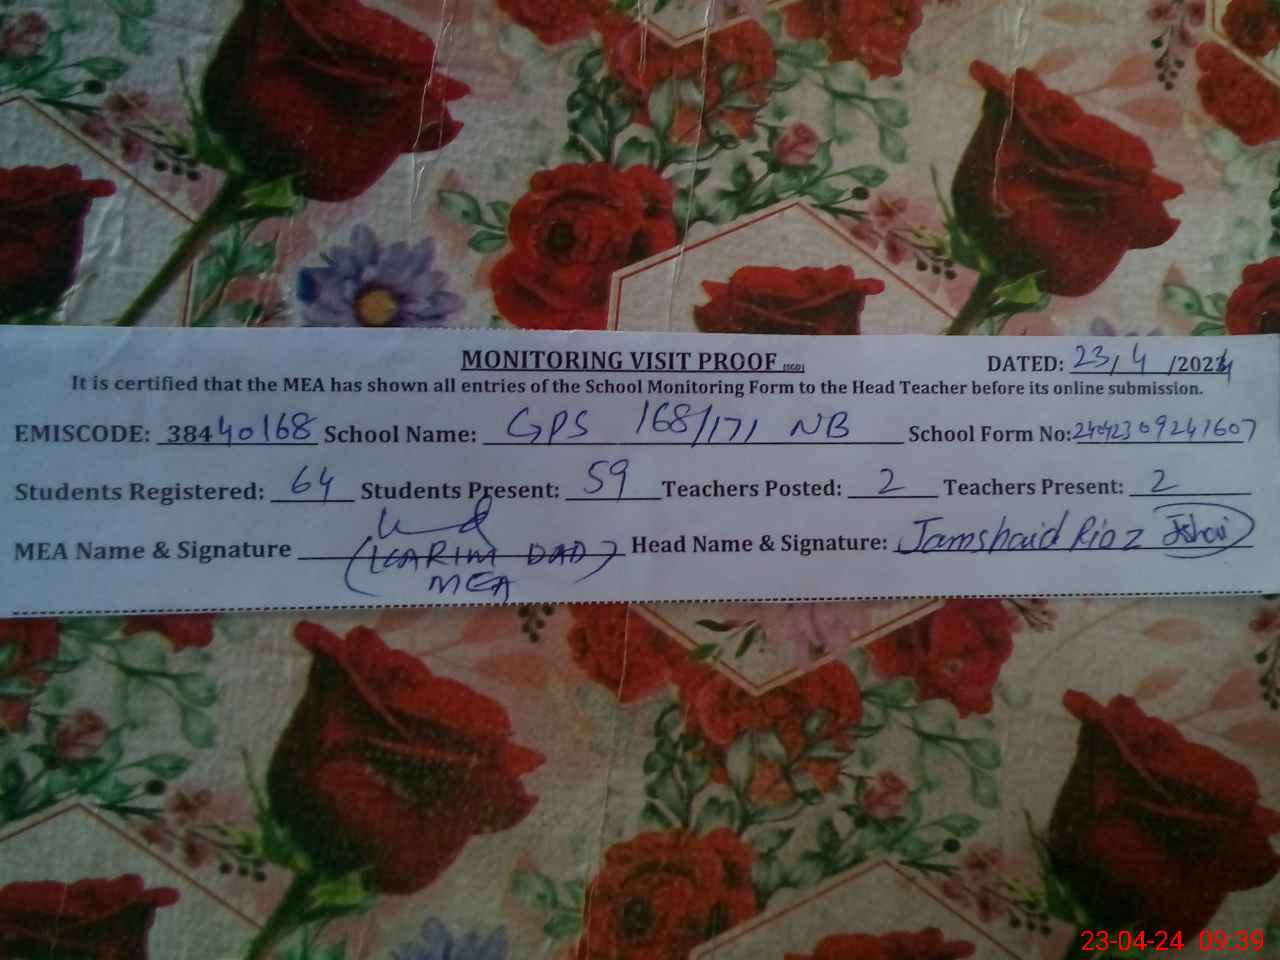 MONITORING VISIT PROOF DATED: 23/4/2024
It is certified that the MEA has shown all entries of the School Monitoring Form to the Head Teacher before its online submission.
EMISCODE: 38440168 School Name: GPS 168/171 NB School Form No: 24042309241607
Students Registered: 64 Students Present: 59 Teachers Posted: 2 Teachers Present: 2
MEA Name & Signature (KARIM DAD) Head Name & Signature: Jamshaid Riaz
MEA
23-04-24 09:39